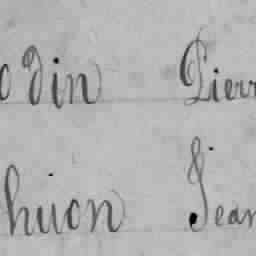 odin Pierr
huon Jean